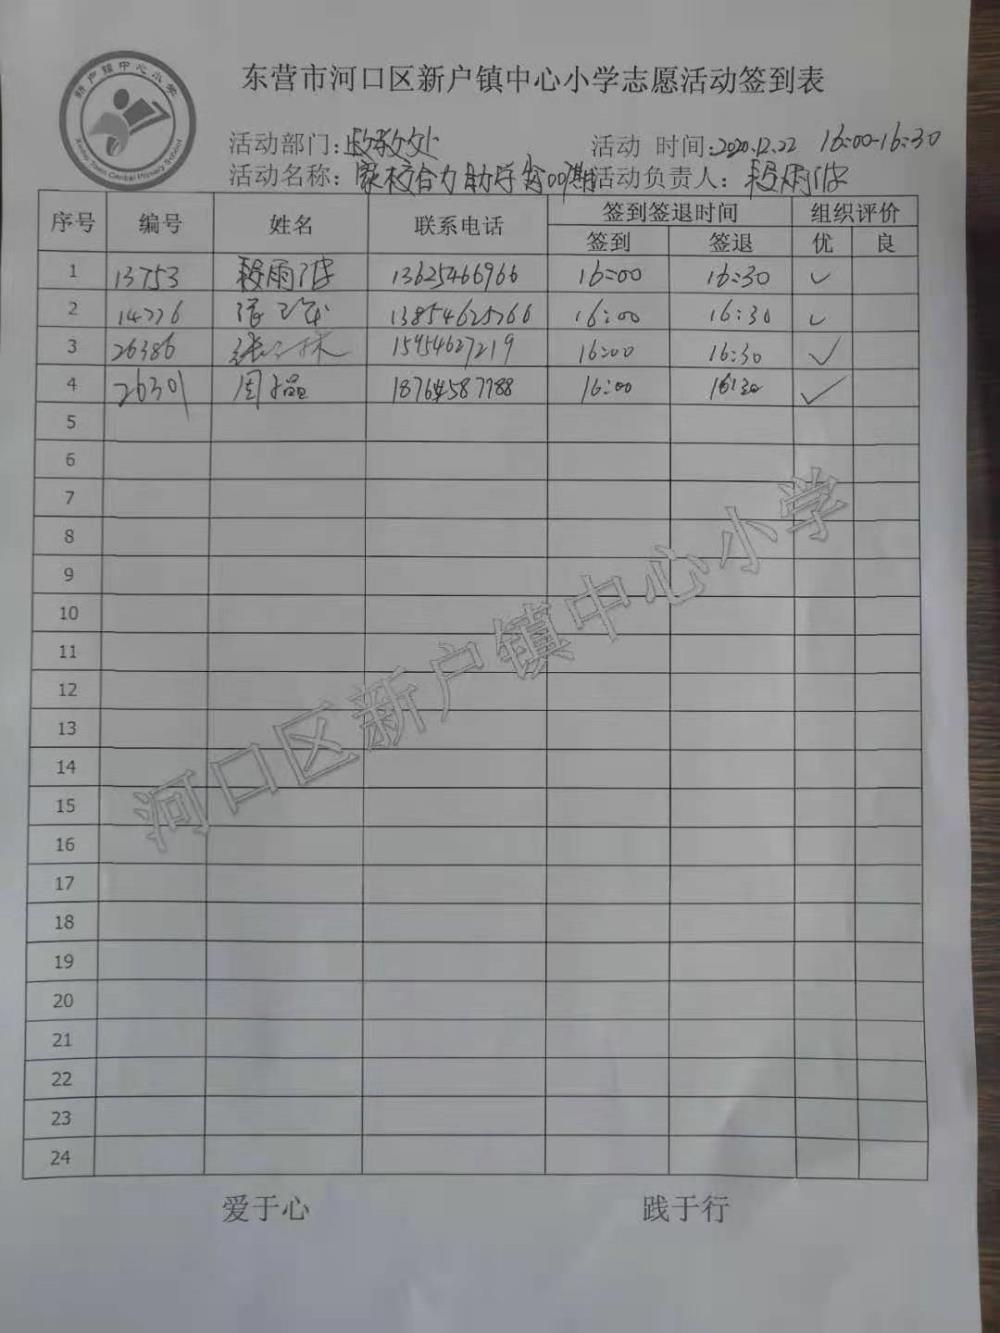 新户镇中心小学
Xinhu Town Central Primary School
东营市河口区新户镇中心小学志愿活动签到表
活动部门：政教处 活动 时间：2020.12.22 16:00-16:30
活动名称：家校合力 助学 活动负责人：段雨
序号 编号 姓名 联系电话 签到签退时间 组织评价
签到 签退 优 良
1 13753 段雨 13625466966 16:00 16:30 ✓
2 14776 张 13854625766 16:00 16:30 ✓
3 26386 张 林 15954627219 16:00 16:30 ✓
4 26301 周 18764587788 16:00 16:30 ✓
5
6
7
8
9
10
11
12
13
14
15
16
17
18
19
20
21
22
23
24
河口区新户镇中心小学
爱于心 践于行